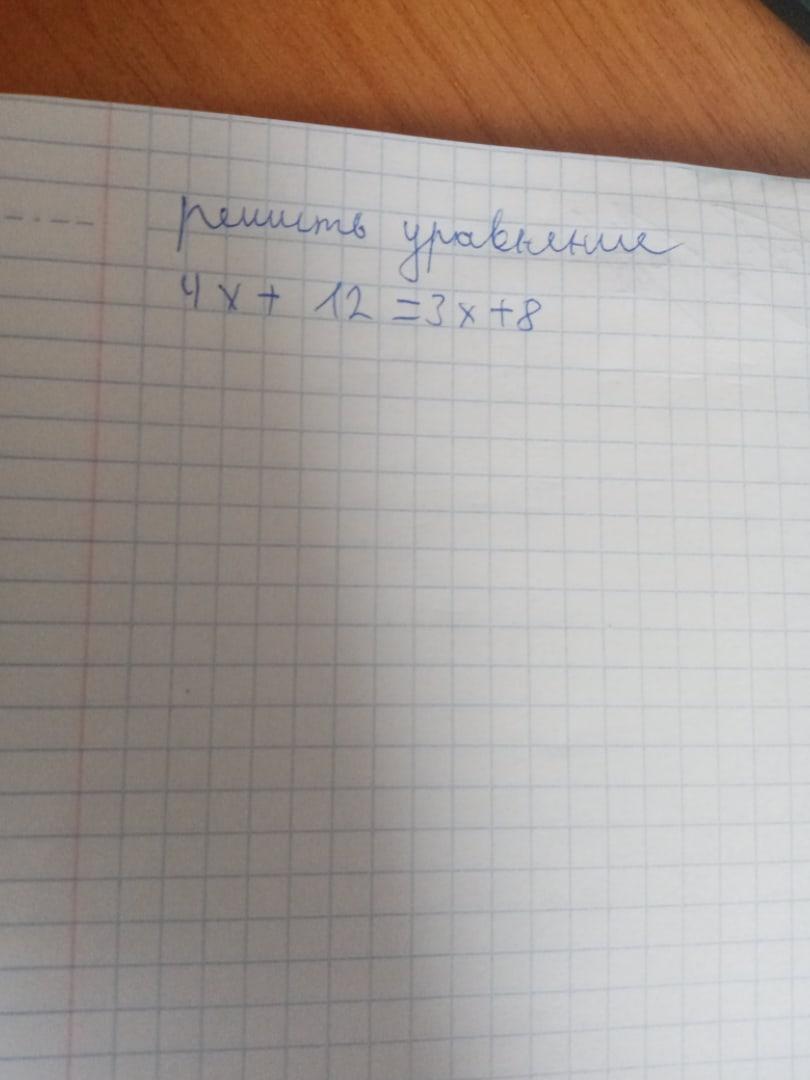 решить уравнение
4x + 12 = 3x + 8